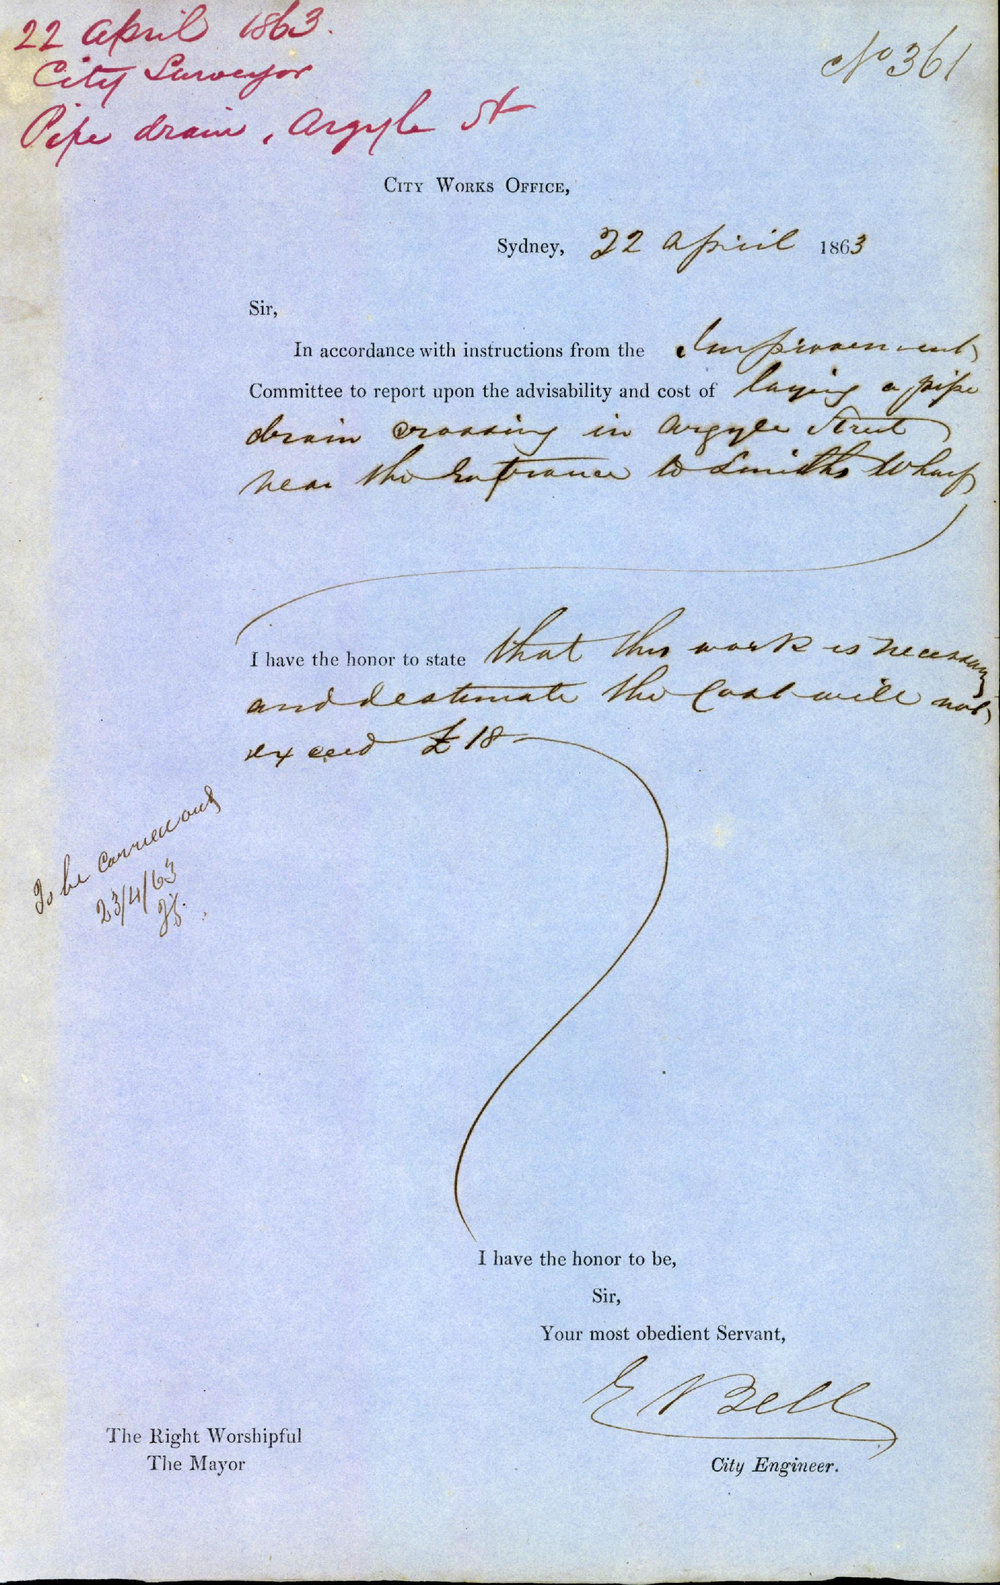 22 April 1863.
City Surveyor
Pipe drain, Argyle St
No 361
City Works Office,
Sydney, 22 April 1863
Sir,
In accordance with instructions from the Improvement
Committee to report upon the advisability and cost of laying a pipe
drain crossing in Argyle Street
near the Entrance to Smiths Wharf
I have the honor to state that this work is necessary
and I estimate the Cost will not
exceed £18
To be carried out
23/4/63
I have the honor to be,
Sir,
Your most obedient Servant,
E Bell
City Engineer.
The Right Worshipful
The Mayor